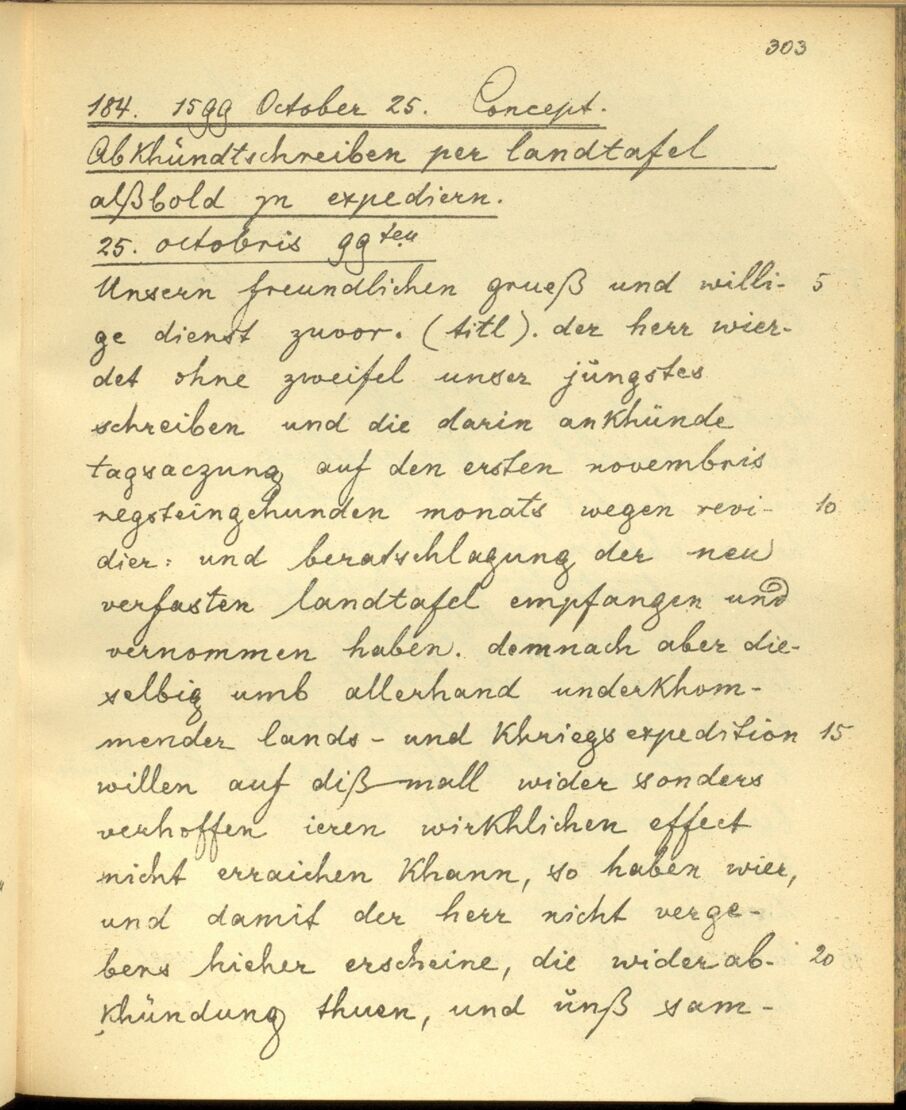 303
184. 1599 October 25. Concept.
Abkhündtschreiben per landtafel
alßbold zu expediern.
25. octobris 99ten
Unsern freundlichen grueß und willi- 5
ge dienst zuvor. (titl). der herr wier-
det ohne zweifel unser jüngstes
schreiben und die darin ankhünde
tagsaczung auf den ersten novembris
negsteingehunden monats wegen revi- 10
dier: und beratschlagung der neu
verfasten landtafel empfangen und
vernommen haben. demnach aber die-
selbig umb allerhand underkhom-
mender lands- und khriegsexpedition 15
willen auf diß mall wider sonders
verhoffen ieren wirkhlichen effect
nicht erraichen khann, so haben wier,
und damit der herr nicht verge-
bens hieher erscheine, die widerab- 20
khündung thuen, und ünß sam-